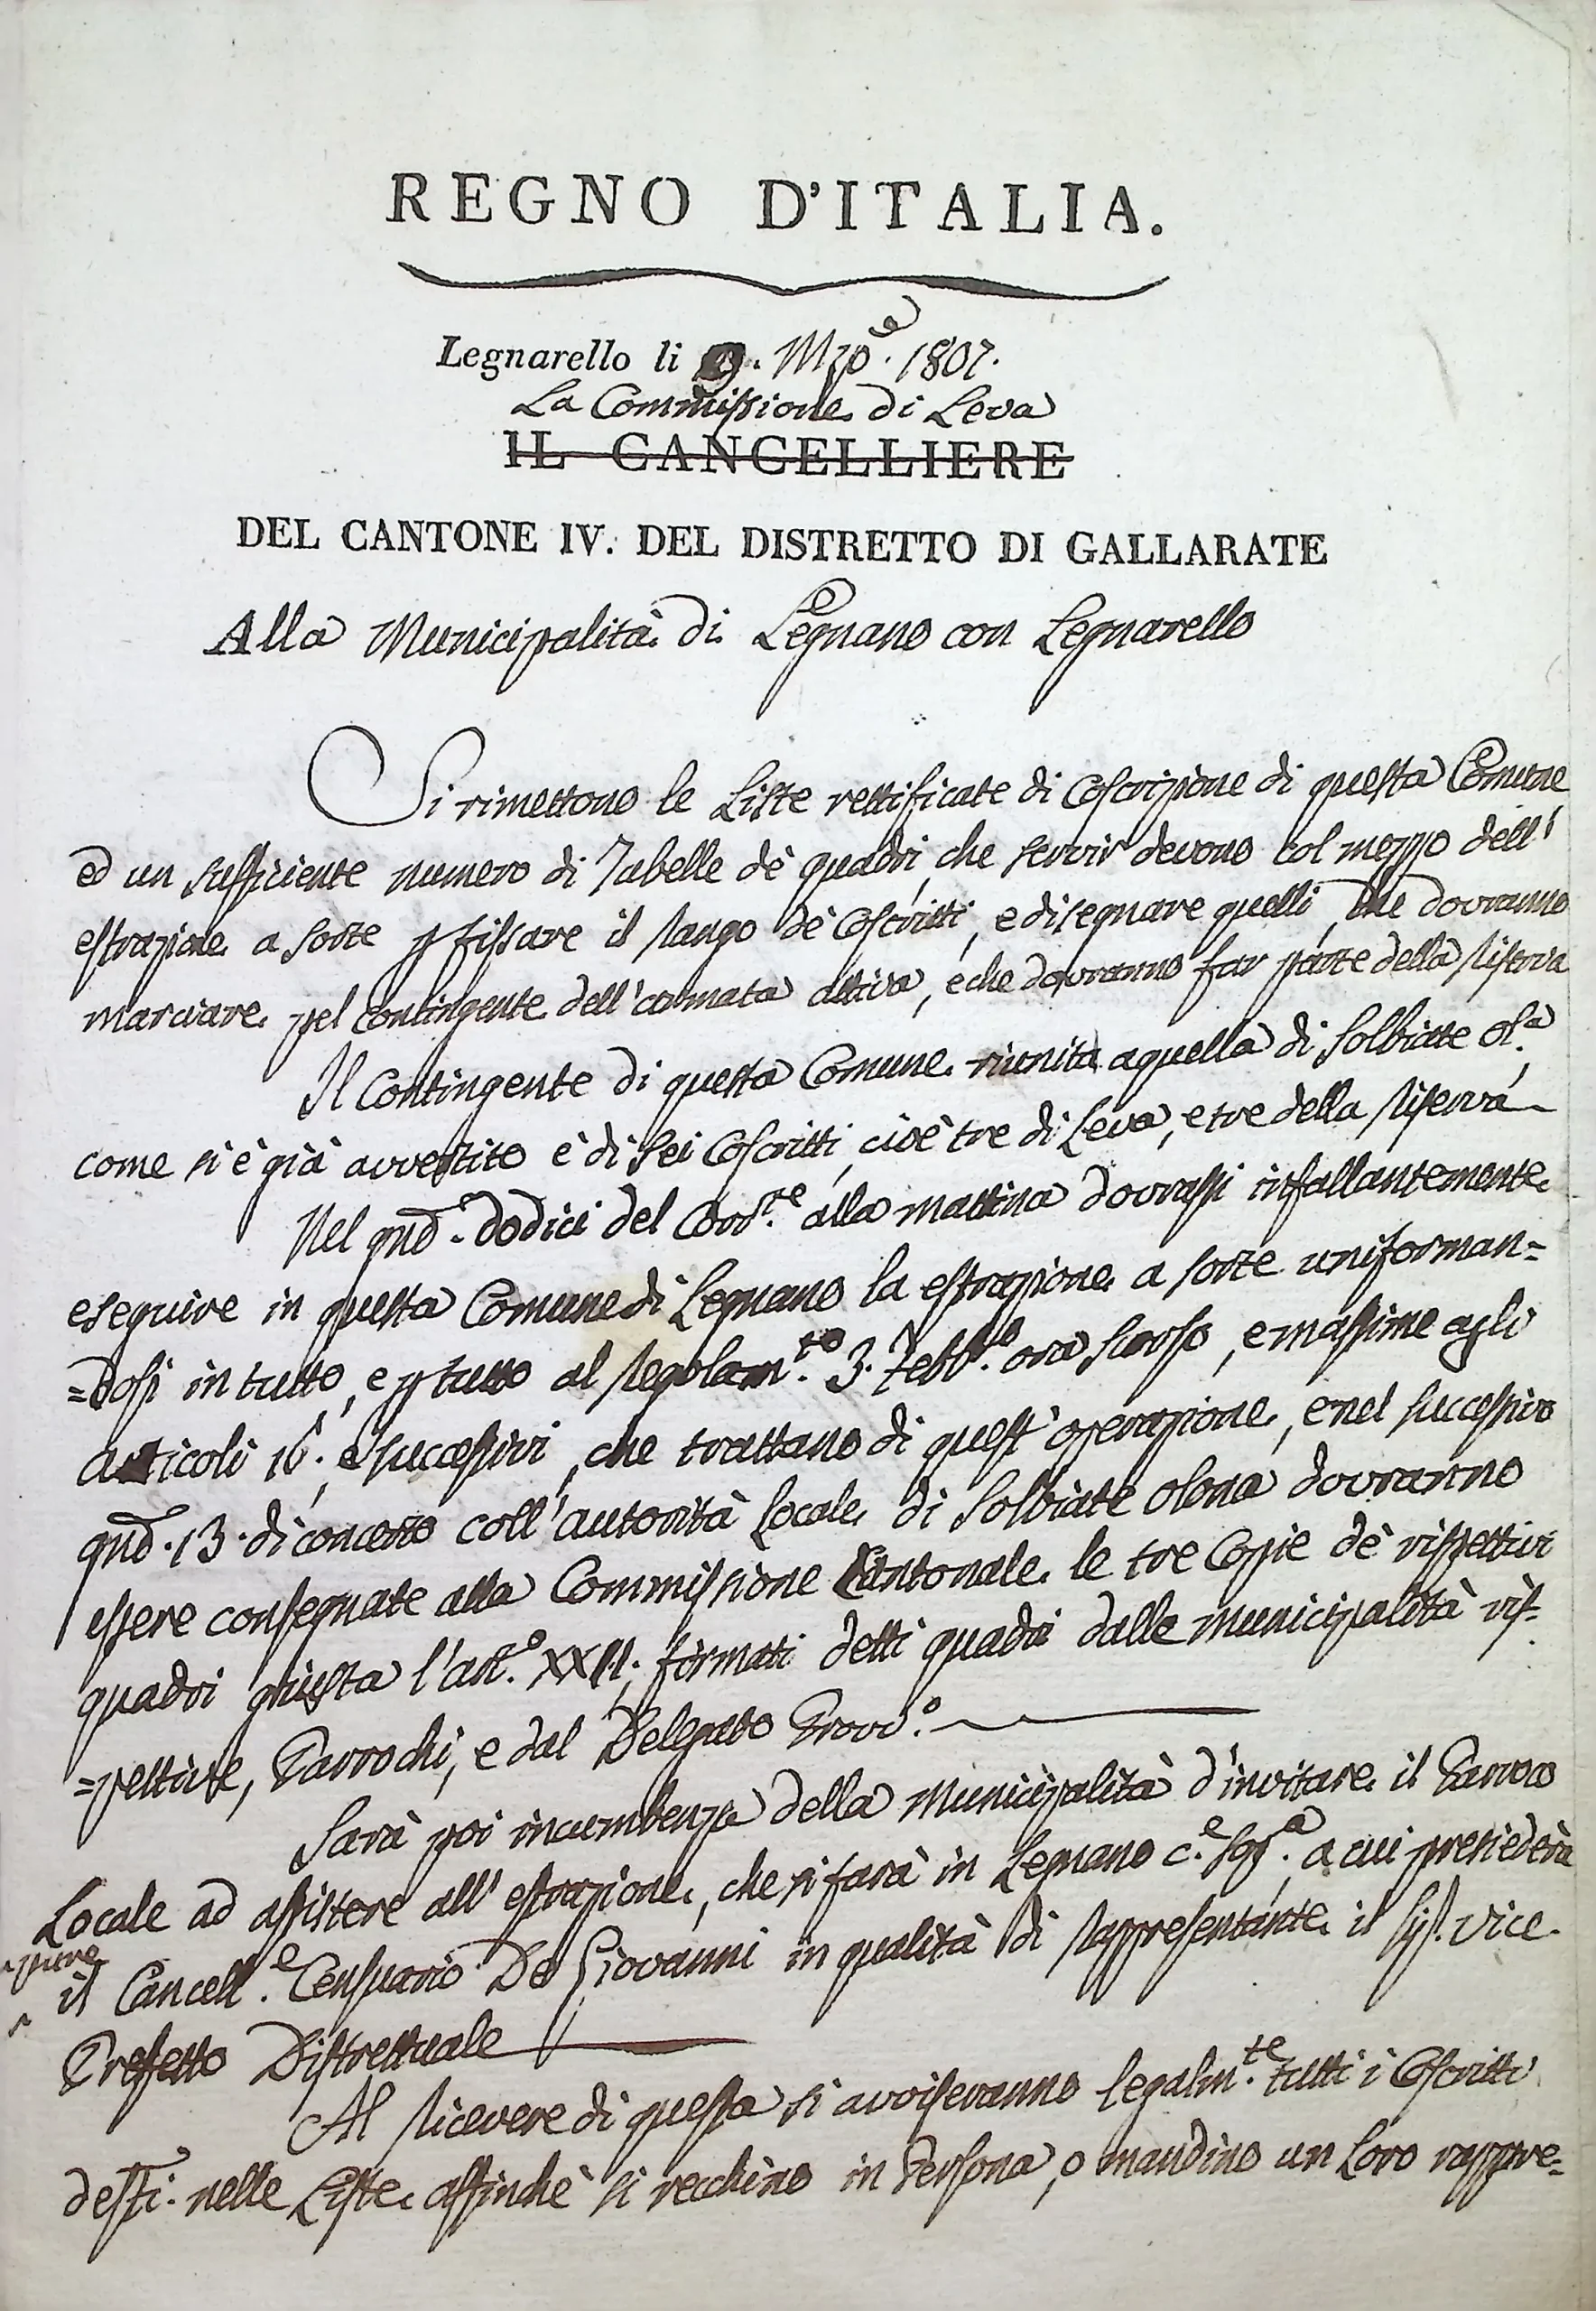 REGNO D'ITALIA.
Legnarello li 9. Mzo. 1807.
La Commissione di Leva
IL CANCELLIERE
DEL CANTONE IV. DEL DISTRETTO DI GALLARATE
Alla Municipalità di Legnano con Legnarello
Si rimettono le Liste rettificate di Coscrizione di questa Comune
ed un sufficiente numero di Tabelle de' quadri, che servir devono col mezzo dell'
estrazione a sorte p fissare il rango de' Coscritti, e disegnare quelli, che dovranno
marciare pel contingente dell'armata attiva, e che dovranno far parte della riserva
Il Contingente di questa Comune riunita a quella di Solbiate Ol.a
come si è già avvertito è di sei Coscritti, cioè tre di Leva, e tre della riserva
Nel gno. dodici del Corr.te alla mattina dovrassi infallantemente
eseguire in questa Comune di Legnano la estrazione a sorte uniforman=
=dosi in tutto, e p tutto al regolam.to 3. Febb.o ora scorso, e massime agli
articoli 16. e successivi, che trattano di quest'operazione, e nel successivo
gno. 13. di concerto coll'autorità Locale di Solbiate Olona dovranno
essere consegnate alla Commissione Cantonale le tre Copie de' rispettivi
quadri giusta l'art.o XXII. firmati detti quadri dalle municipalità ris=
=pettive, Parrochi, e dal Delegato Provv.o
Sarà poi incumbenza della Municipalità d'invitare il Parroco
Locale ad assistere all'estrazione, che si farà in Legnano c.e sop.a, a cui presiederà
pure
il Cancell.e Censuario De Giovanni in qualità di rappresentante il Sig. Vice
Prefetto Distrettuale
Al ricevere di questa si avviseranno legalm.te tutti i Coscritti
destti. nelle Liste affinchè si rechino in Persona, o mandino un Loro rappre=